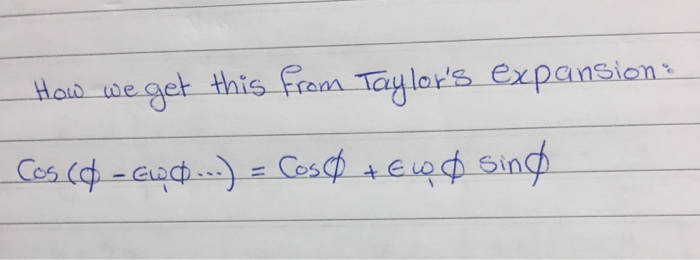 How we get this from Taylor's expansion:
Cos(ϕ - ϵω₁ϕ...) = Cosϕ + ϵω₁ϕ sinϕ